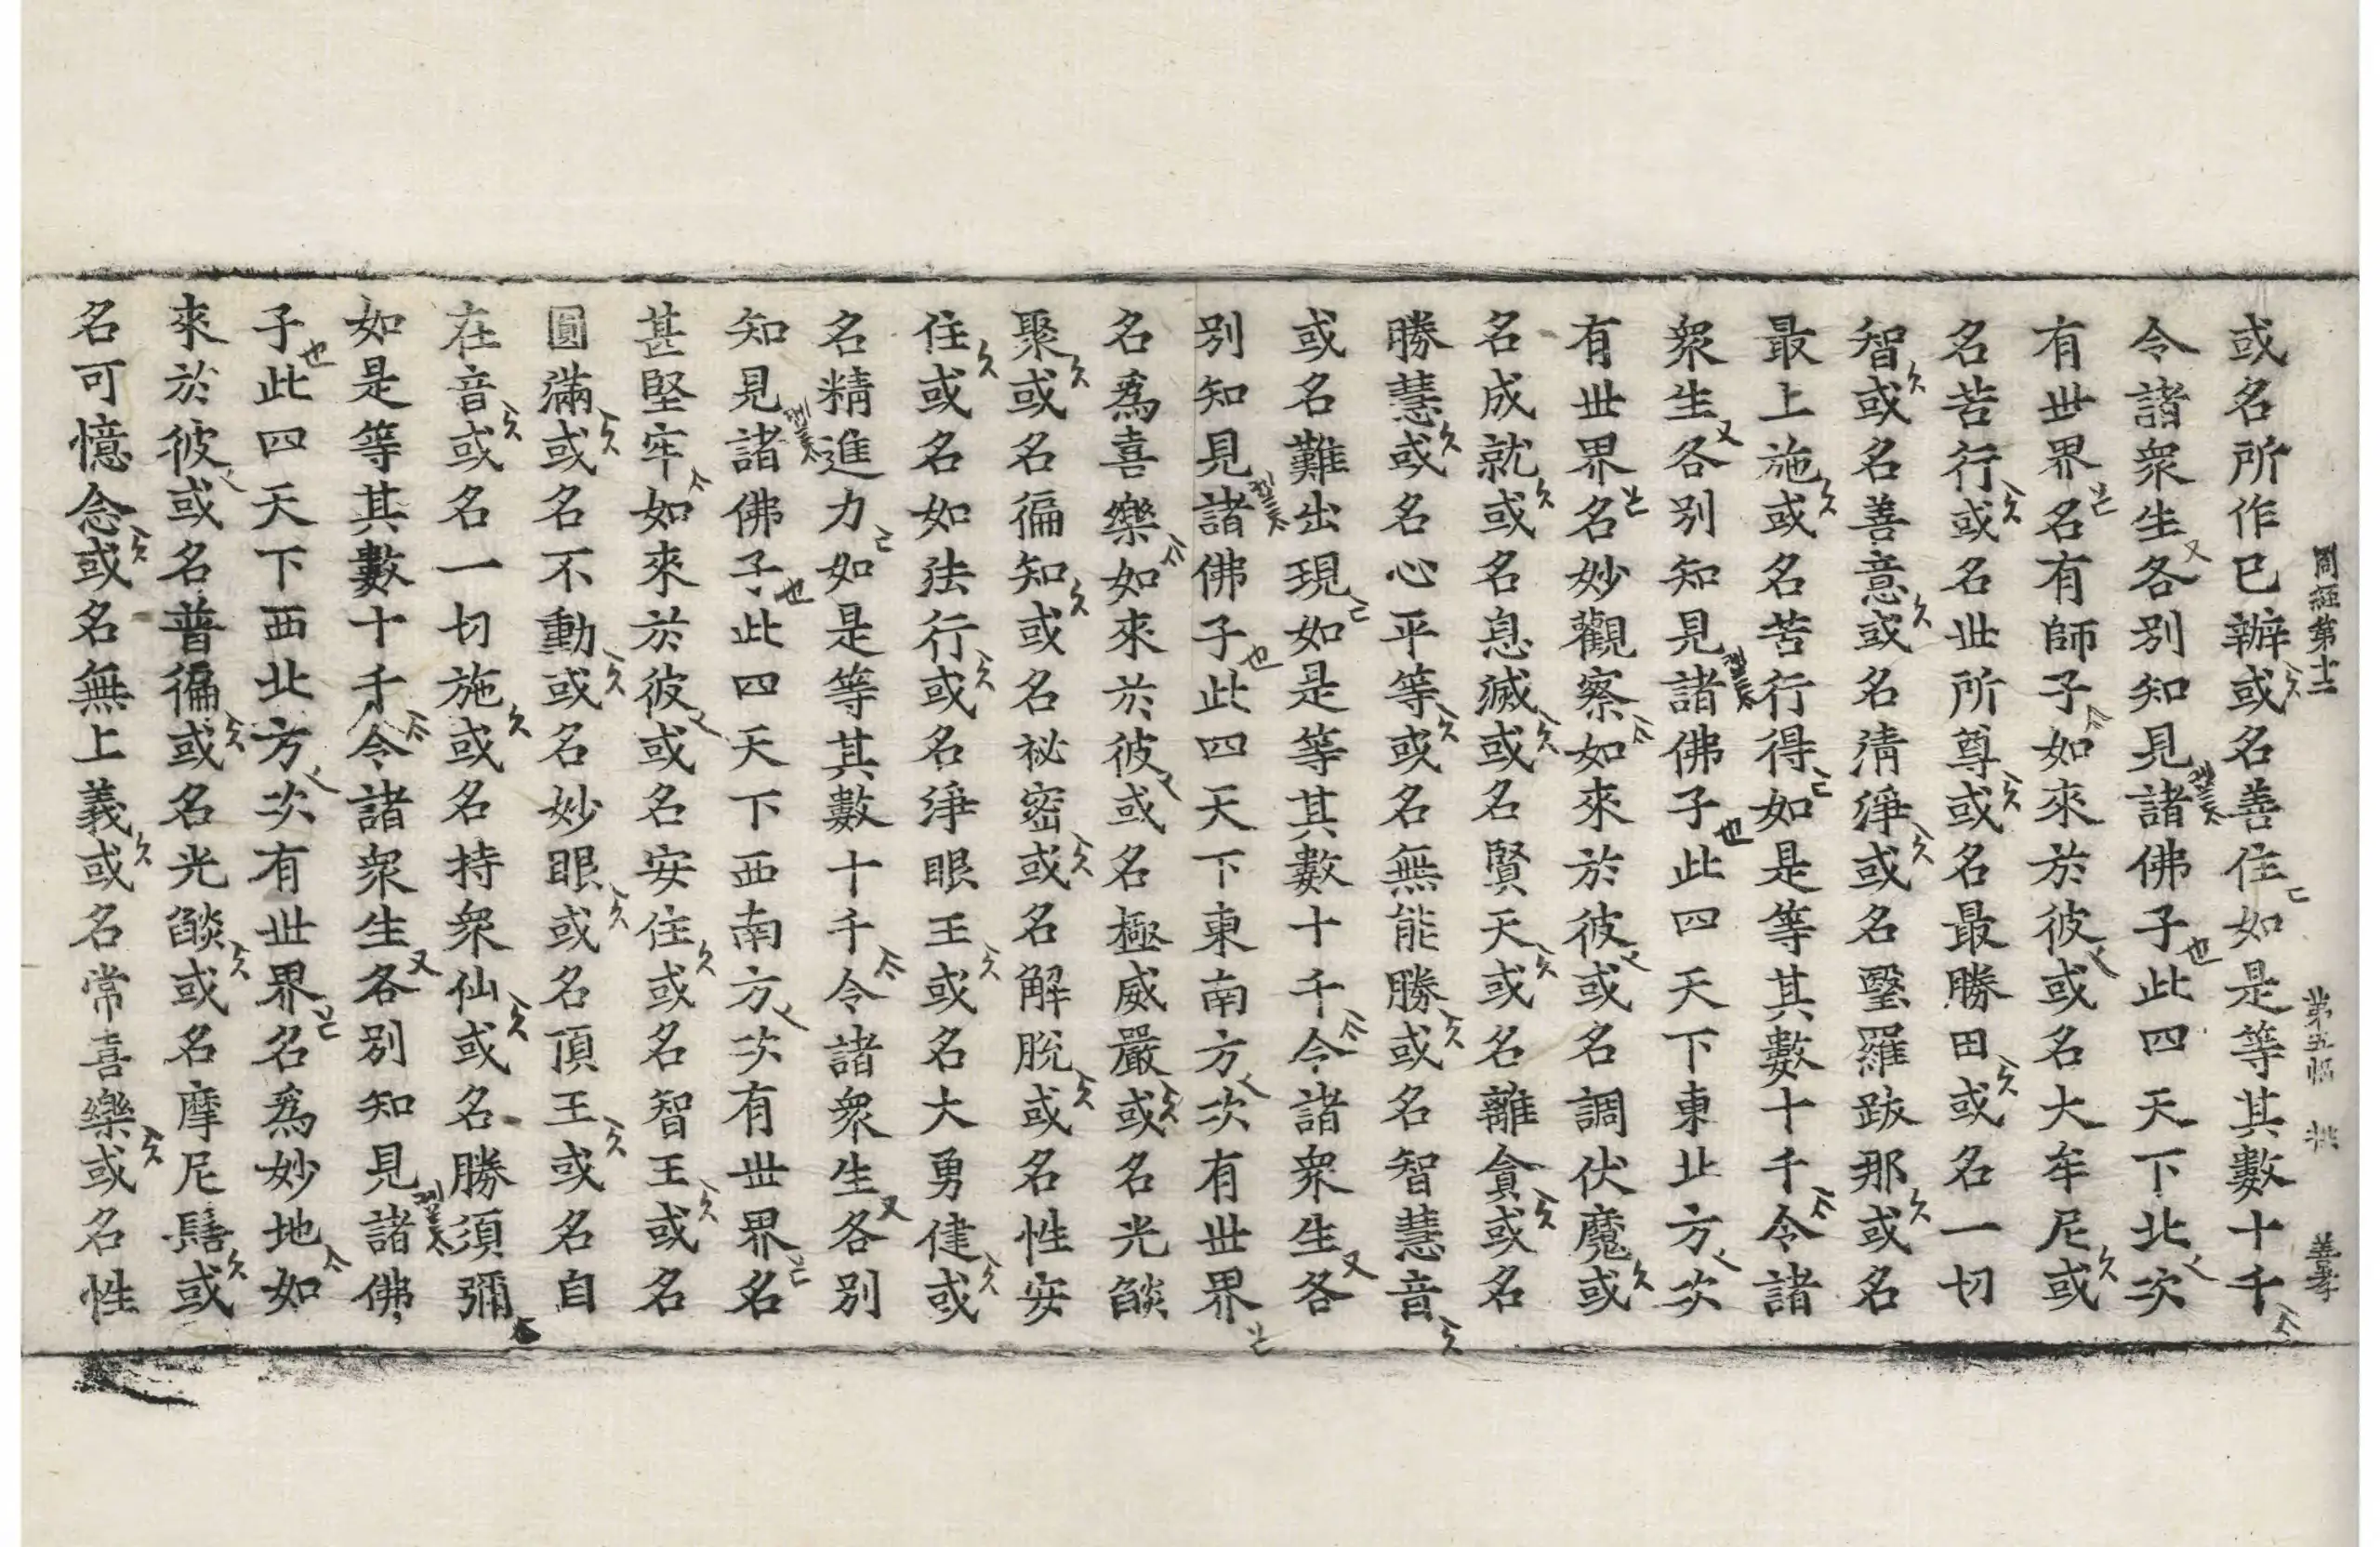 周經第十二 第五幅 善孝
或名所作已辦或名善住如是等其數十千
令諸衆生各別知見諸佛子此四天下北次
有世界名有師子如來於彼或名大牟尼或
名苦行或名世所尊或名最勝田或名一切
智或名善意或名清淨或名瑿羅跋那或名
最上施或名苦行得如是等其數十千令諸
衆生各別知見諸佛子此四天下東北方次
有世界名妙觀察如來於彼或名調伏魔或
名成就或名息滅或名賢天或名離貪或名
勝慧或名心平等或名無能勝或名智慧音
或名難出現如是等其數十千令諸衆生各
別知見諸佛子此四天下東南方次有世界
名爲喜樂如來於彼或名極威嚴或名光燄
聚或名徧知或名祕密或名解脫或名性安
住或名如法行或名淨眼王或名大勇健或
名精進力如是等其數十千令諸衆生各別
知見諸佛子此四天下西南方次有世界名
甚堅牢如來於彼或名安住或名智王或名
圓滿或名不動或名妙眼或名頂王或名自
在音或名一切施或名持衆仙或名勝須彌
如是等其數十千令諸衆生各別知見諸佛
子此四天下西北方次有世界名爲妙地如
來於彼或名普徧或名光燄或名摩尼髻或
名可憶念或名無上義或名常喜樂或名性